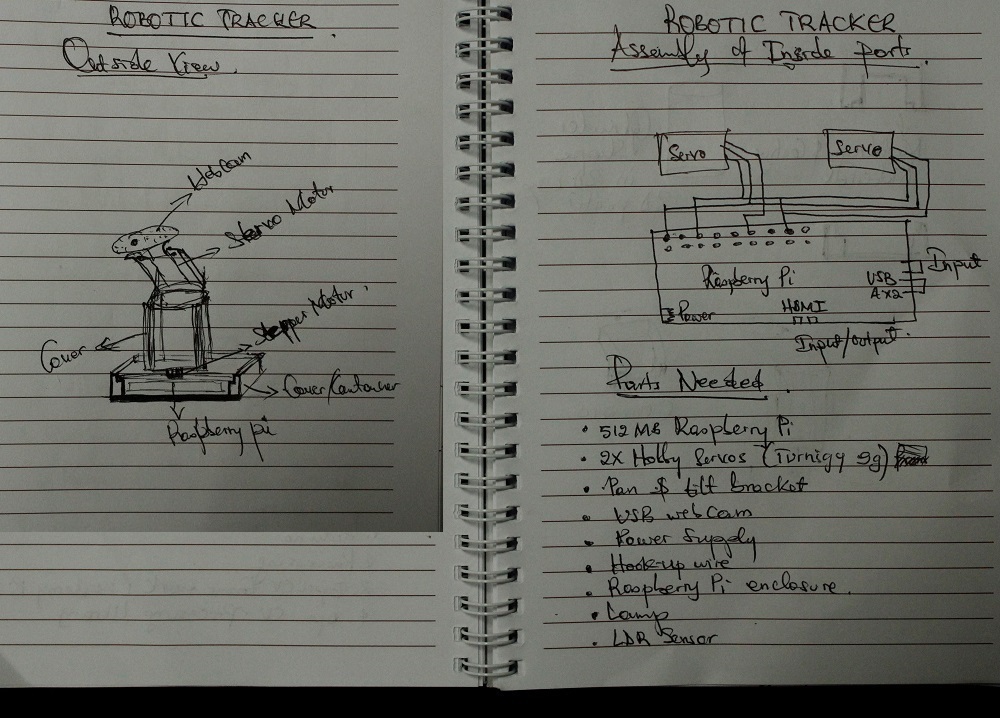 ROBOTIC TRACKER.
Outside View.
WebCam
Servo Motor
Stepper Motor.
Cover
Cover/Container
Raspberry pi
ROBOTIC TRACKER
Assembly of Inside parts.
Servo
Servo
Raspberry Pi
Input
USB
A x2
Power
HDMI
Input/output.
Parts Needed.
• 512 MB Raspberry Pi
• 2X Hobby Servos (Turnigy 9g)
• Pan & tilt bracket
• USB webCam
• Power Supply
• Hook-up wire
• Raspberry Pi enclosure.
• Lamp
• LDR Sensor